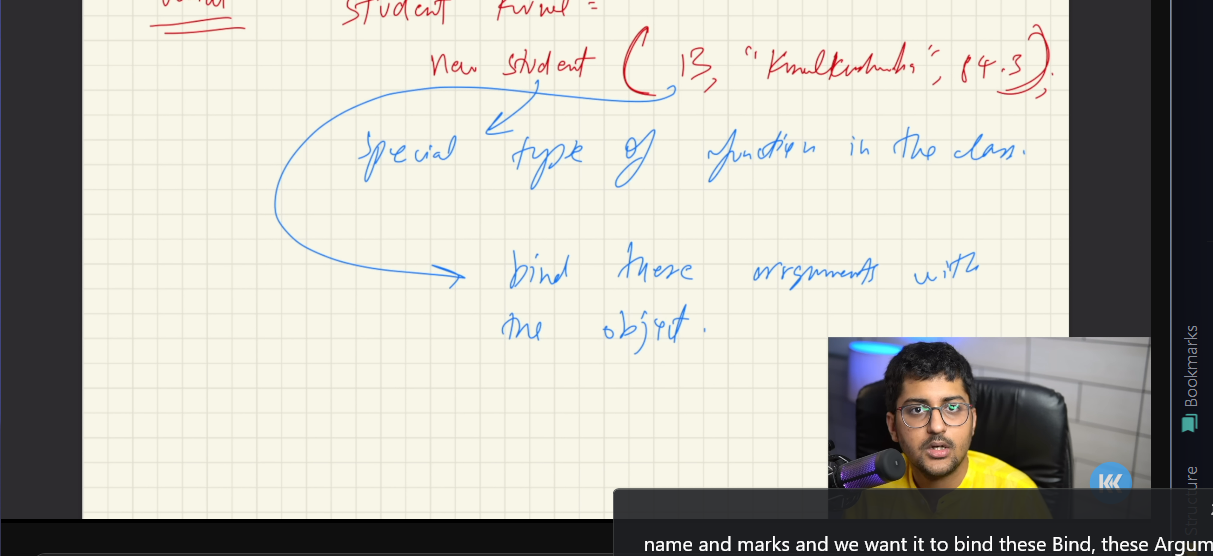 student Kunal =
new student ( 13, "Kunal Kushwaha", 84.3);
special type of function in the class.
bind these arguments with
the object.
Bookmarks
Structure
KK
name and marks and we want it to bind these Bind, these Argum